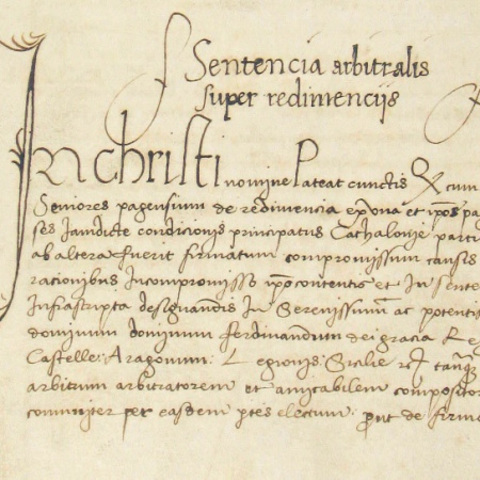 Sentencia arbitralis
super redimenciis
In christi nomine Pateat cunctis cum
Seniores pagensium de redimencia ex una et ipos pa
ses Jamdicte condicionis principatus Cathalonie parti
ab altera fuerit firmatum compromissum causis
racionibus In compromisso ipo contentis et In sente
Infrascripta designandis In Serenissimum ac potentis
dominum dominum ferdinandum dei gracia Re
Castelle Aragonum Legionis Sicilie tanq
arbitrum arbitratorem et amicabilem compositor
communiter per easdem ptes electum: put de firma